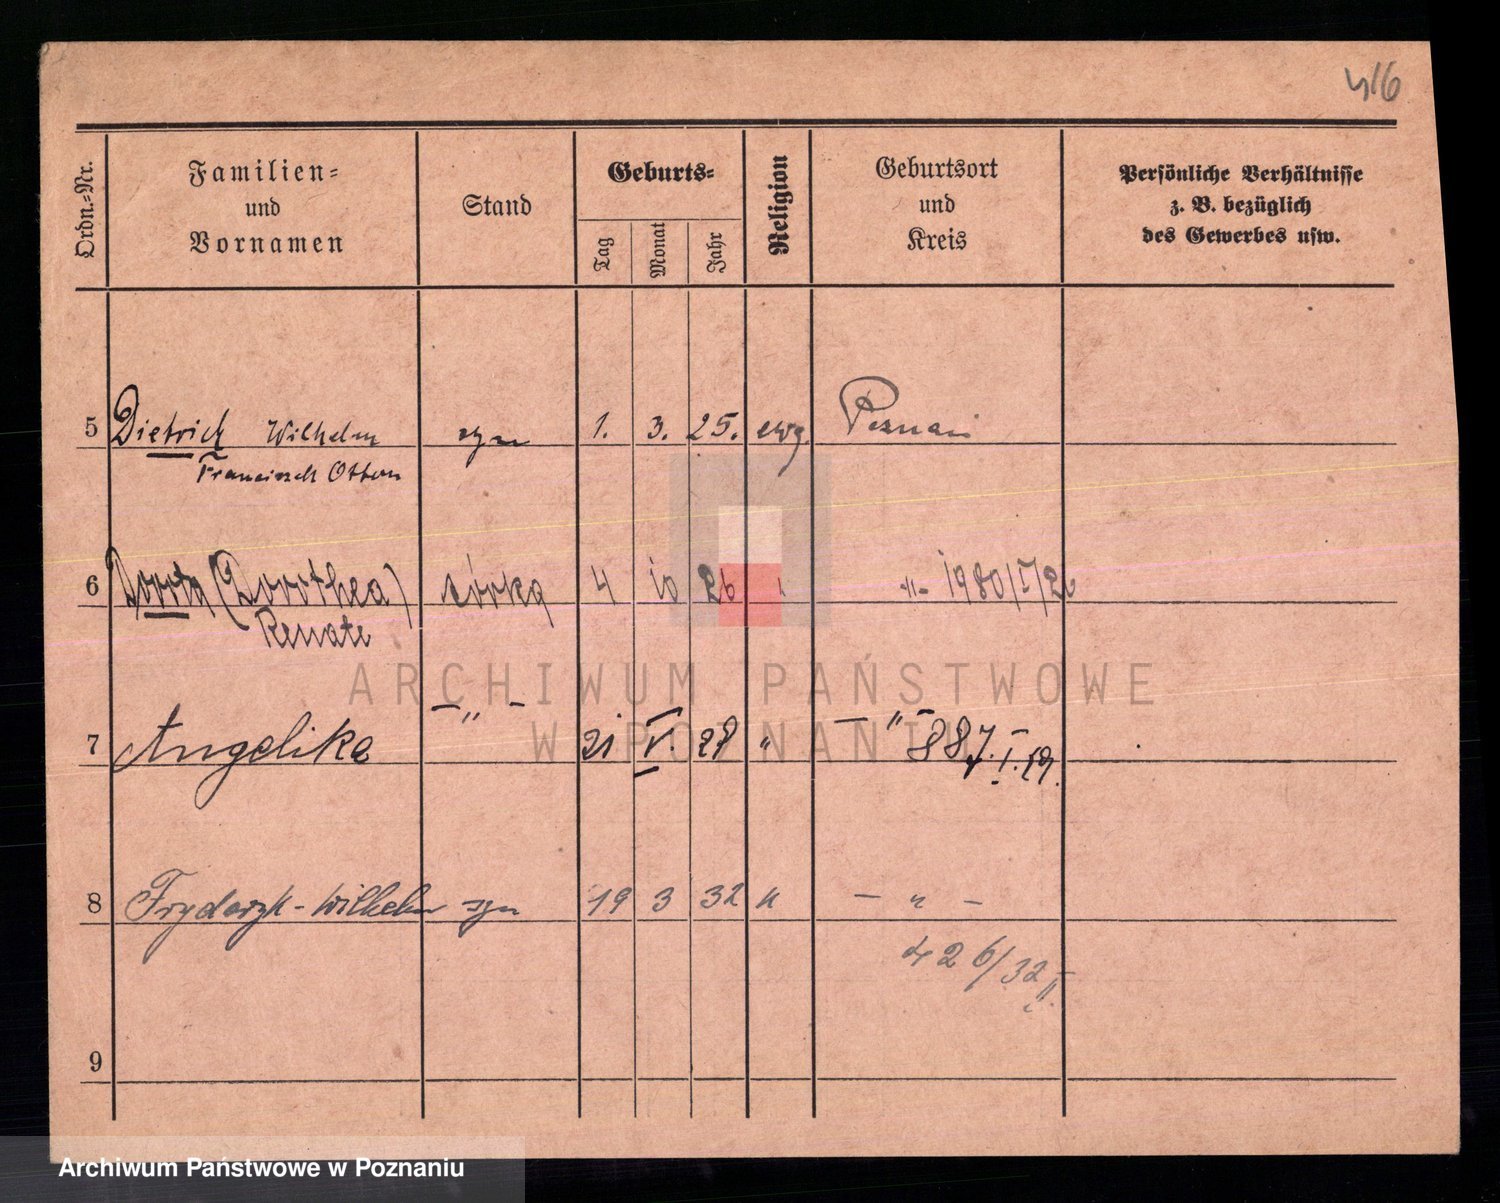 416
Ordn.-Nr.
Familien-
und
Vornamen
Stand
Geburts-
Tag
Monat
Jahr
Religion
Geburtsort
und
Kreis
Persönliche Verhältnisse
z. B. bezüglich
des Gewerbes usw.
5 Dietrich Wilhelm syn 1. 3. 25. ewg. Poznań
Franciszek Otton
6 Dorota (Dorothea) córka 4 10 26 -"- 1980/I/26
Renate
7 Angelika -"- 21 V. 28 " -"- 887. I.
8 Fryderyk-Wilhelm syn 19 3 32 " -"-
426/32 II.
9
ARCHIWUM PAŃSTWOWE
W POZNANIU
Archiwum Państwowe w Poznaniu